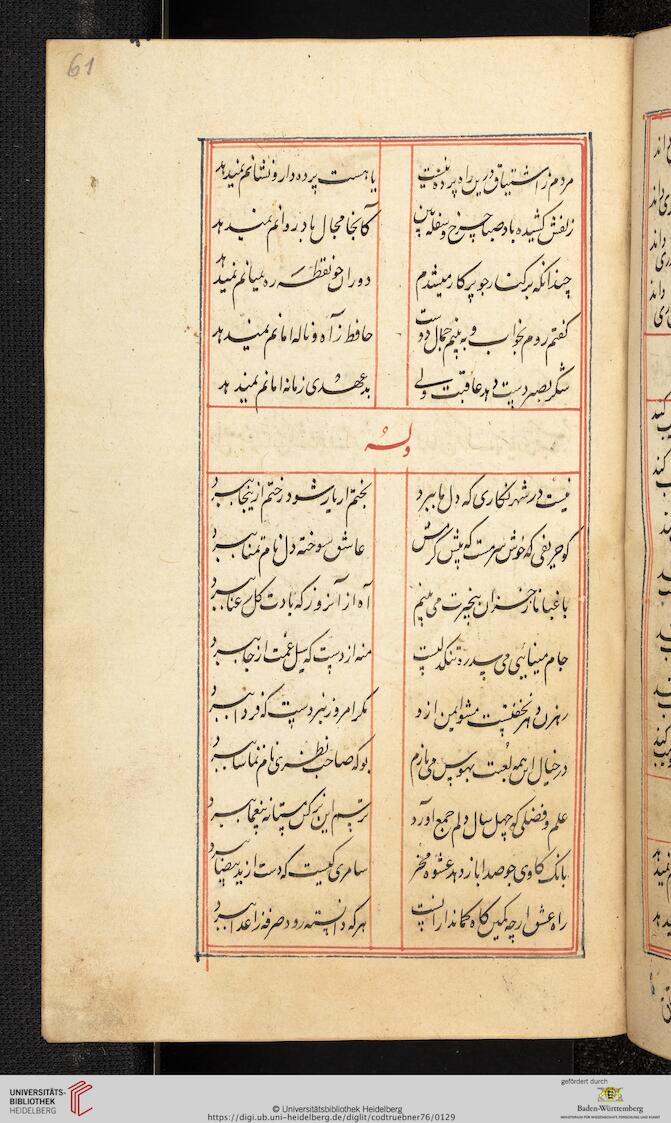 61
مردم ز اشتیاق درین راه پرده نیست یا هست پرده دار و نشانم نمیدهد
زلفش کشیده باد صبا چرخ سفله بین کانجا مجال باد روانم نمیدهد
چندانکه بر کنار چو پرکار میشدم دوران چو نقطه ره بمیانم نمیدهد
گفتم روم بخواب و به بینم جمال دوست حافظ ز آه و ناله امانم نمیدهد
شکر بصبر دست دهد عاقبت ولی بدعهدی زمانه امانم نمیدهد
وله
نیست در شهر نگاری که دل ما ببرد بختم ار یار شود رختم ازینجا ببرد
کو حریفی که خوش سرمست که پیش کرمش عاشق سوخته دل نام تمنا ببرد
باغبانا ز خزان بیخبرت می بینم آه از آنروز که بادت گل رعنا ببرد
جام مینائی می سد ره تنگدلیست منه از دست که سیل غمت از جا ببرد
رهزن دهر نخفتست مشو ایمن ازو مگر امروز نبردست که فردا ببرد
در خیال این همه لعبت بهوس می بازم بو که صاحب نظری نام تماشا ببرد
علم و فضلی که چهل سال دلم جمع آورد ترسم این نرگس مستانه بیغما ببرد
بانک گاوی چو صدا باز دهد عشوه مخر سامری کیست که دست از ید بیضا ببرد
راه عشق ارچه کمین گاه کماندارانست هر که دانسته رود صرفه ز اعدا ببرد
UNIVERSITÄTS-
BIBLIOTHEK
HEIDELBERG
© Universitätsbibliothek Heidelberg
https://digi.ub.uni-heidelberg.de/diglit/codtruebner76/0129
gefördert durch
Baden-Württemberg